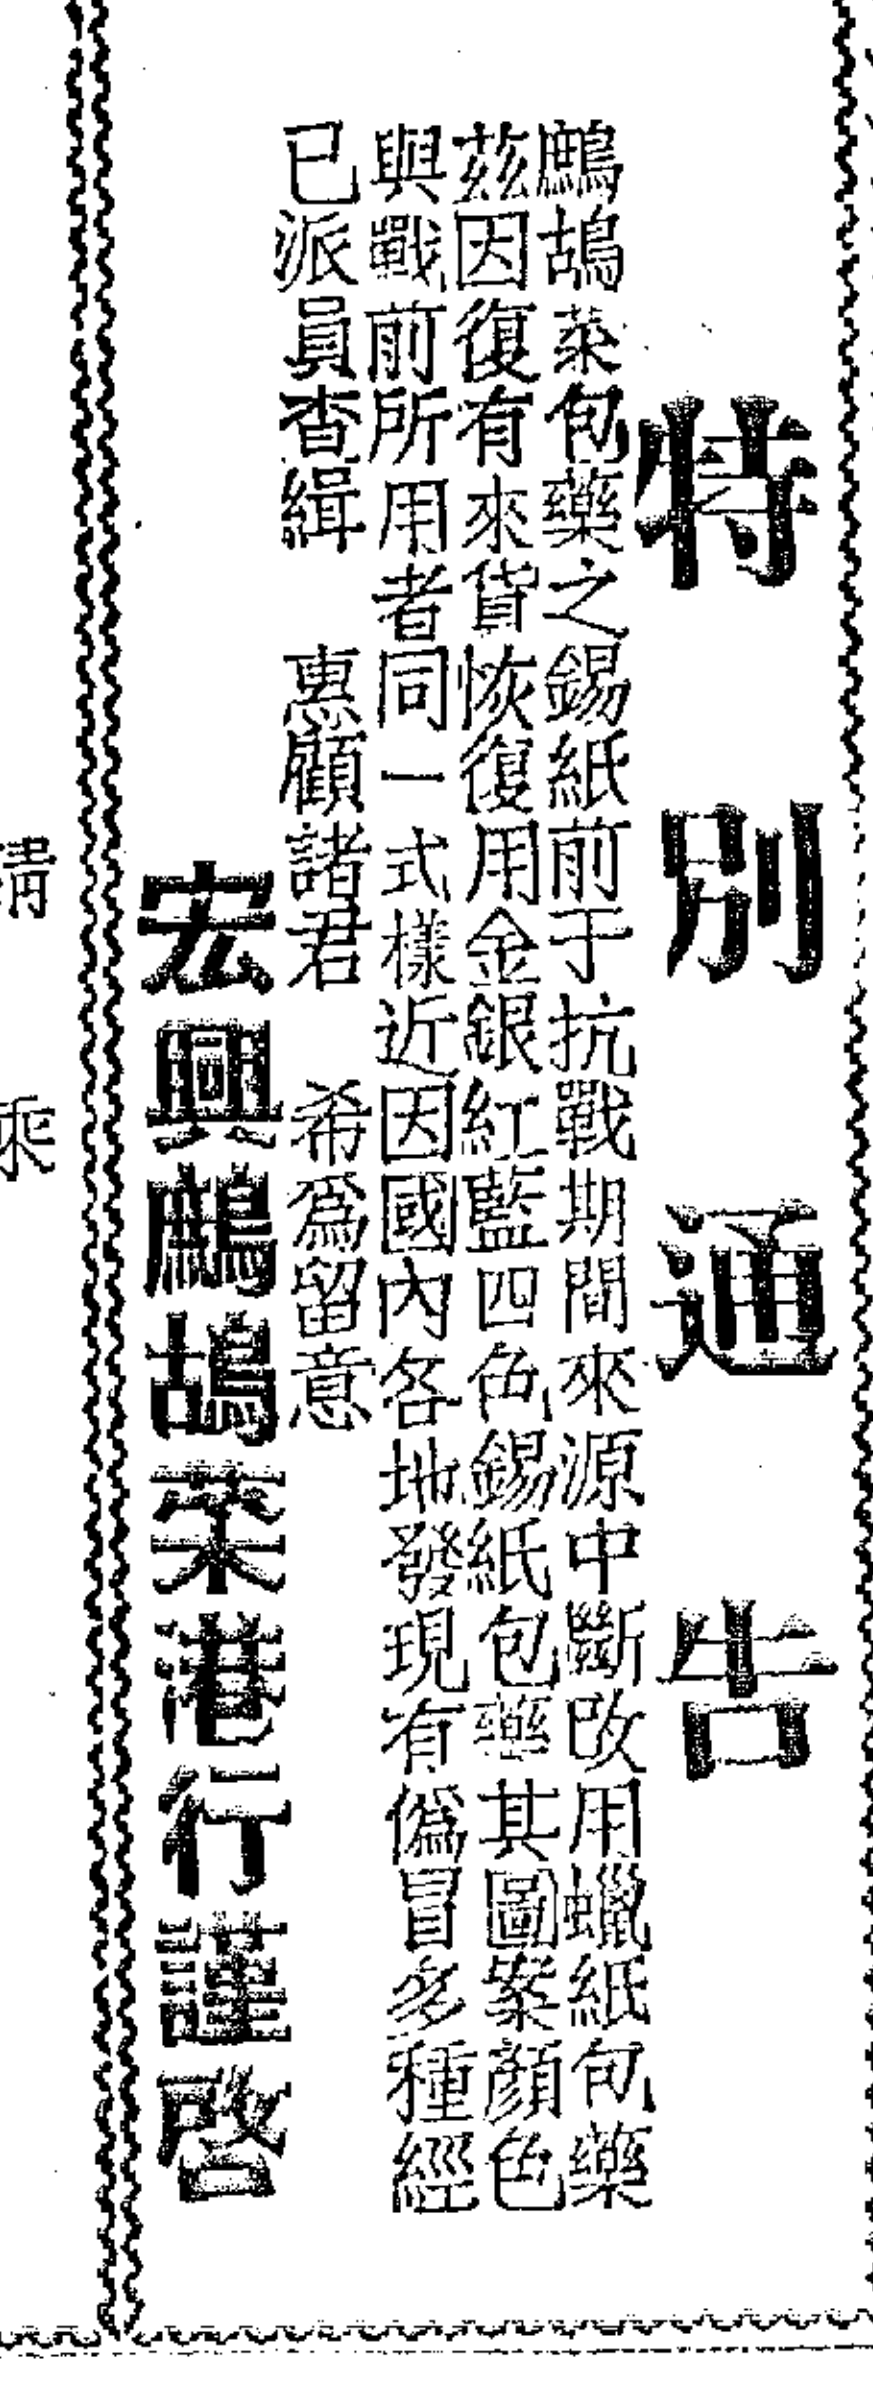 特別通告
鷓鴣菜包藥之錫紙前于抗戰期間來源中斷改用蠟紙包藥
茲因復有來貨恢復用金銀紅藍四色錫紙包藥其圖案顏色
與戰前所用者同一式樣近因國內各地發現有僞冒多種經
已派員查緝　惠顧諸君　希爲留意
宏興鷓鴣菜港行謹啓
請
乘